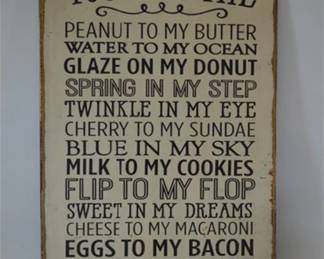 PEANUT TO MY BUTTER
WATER TO MY OCEAN
GLAZE ON MY DONUT
SPRING IN MY STEP
TWINKLE IN MY EYE
CHERRY TO MY SUNDAE
BLUE IN MY SKY
MILK TO MY COOKIES
FLIP TO MY FLOP
SWEET IN MY DREAMS
CHEESE TO MY MACARONI
EGGS TO MY BACON